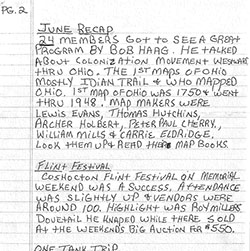 PG. 2
JUNE RECAP
24 MEMBERS GOT TO SEE A GREAT
PROGRAM BY BOB HAAG. HE TALKED
ABOUT COLONIZATION MOVEMENT WESTWARD
THRU OHIO. THE 1ST MAPS OF OHIO
MOSTLY IDIAN TRAIL & WHO MAPPED
OHIO. 1ST MAP OF OHIO WAS 1750 & WENT
THRU 1948. MAP MAKERS WERE
LEWIS EVANS, THOMAS HUTCHINS,
ARCHER HOLBERT, PETER PAUL CHERRY,
WILLIAM MILLS & CARRIE ELDRIDGE.
LOOK THEM UP & READ THERE MAP BOOKS.
FLINT FESTIVAL
COSHOCTON FLINT FESTIVAL ON MEMORIAL
WEEKEND WAS A SUCCESS. ATTENDANCE
WAS SLIGHTLY UP & VENDORS WERE
AROUND 100. HIGHLIGHT WAS ROY MILLERS
DOVETAIL HE KNAPED WHILE THERE SOLD
AT THE WEEKENDS BIG AUCTION FOR $550.
ONE TANK TRIP